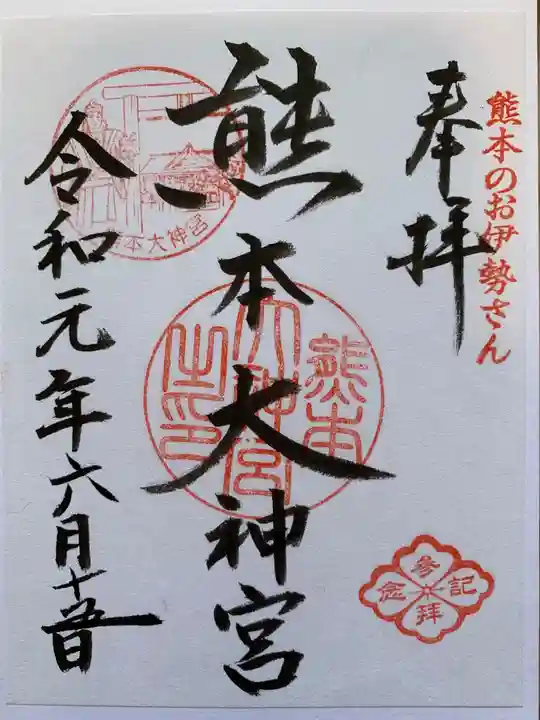 熊本のお伊勢さん
奉拝
熊本大神宮
熊本
大神宮
之印
令和元年六月十五日
本大神宮
参拝
記念